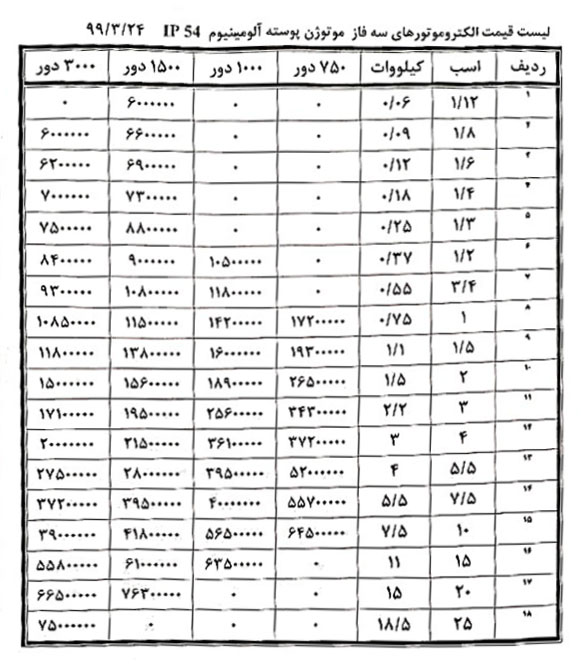 لیست قیمت الکتروموتورهای سه فاز موتوژن پوسته آلومینیوم IP 54 ۹۹/۳/۲۴
ردیف اسب کیلووات ۷۵۰ دور ۱۰۰۰ دور ۱۵۰۰ دور ۳۰۰۰ دور
۱ ۱/۱۲ ۰/۰۶ ۰ ۰ ۶۰۰۰۰۰۰ ۰
۲ ۱/۸ ۰/۰۹ ۰ ۰ ۶۶۰۰۰۰۰ ۶۰۰۰۰۰۰
۳ ۱/۶ ۰/۱۲ ۰ ۰ ۶۹۰۰۰۰۰ ۶۲۰۰۰۰۰
۴ ۱/۴ ۰/۱۸ ۰ ۰ ۷۳۰۰۰۰۰ ۷۰۰۰۰۰۰
۵ ۱/۳ ۰/۲۵ ۰ ۰ ۸۸۰۰۰۰۰ ۷۵۰۰۰۰۰
۶ ۱/۲ ۰/۳۷ ۰ ۱۰۵۰۰۰۰۰ ۹۰۰۰۰۰۰ ۸۴۰۰۰۰۰
۷ ۳/۴ ۰/۵۵ ۰ ۱۱۸۰۰۰۰۰ ۱۰۸۰۰۰۰۰ ۹۳۰۰۰۰۰
۸ ۱ ۰/۷۵ ۱۷۲۰۰۰۰۰ ۱۴۲۰۰۰۰۰ ۱۱۵۰۰۰۰۰ ۱۰۸۵۰۰۰۰
۹ ۱/۵ ۱/۱ ۱۹۳۰۰۰۰۰ ۱۶۰۰۰۰۰۰ ۱۳۸۰۰۰۰۰ ۱۱۸۰۰۰۰۰
۱۰ ۲ ۱/۵ ۲۶۵۰۰۰۰۰ ۱۸۹۰۰۰۰۰ ۱۵۶۰۰۰۰۰ ۱۵۰۰۰۰۰۰
۱۱ ۳ ۲/۲ ۳۴۳۰۰۰۰۰ ۲۵۶۰۰۰۰۰ ۱۹۵۰۰۰۰۰ ۱۷۱۰۰۰۰۰
۱۲ ۴ ۳ ۳۷۲۰۰۰۰۰ ۳۶۱۰۰۰۰۰ ۲۱۵۰۰۰۰۰ ۲۰۰۰۰۰۰۰
۱۳ ۵/۵ ۴ ۵۲۰۰۰۰۰۰ ۳۹۵۰۰۰۰۰ ۲۸۰۰۰۰۰۰ ۲۷۵۰۰۰۰۰
۱۴ ۷/۵ ۵/۵ ۵۵۷۰۰۰۰۰ ۴۰۰۰۰۰۰۰ ۳۹۵۰۰۰۰۰ ۳۷۲۰۰۰۰۰
۱۵ ۱۰ ۷/۵ ۶۴۵۰۰۰۰۰ ۵۶۵۰۰۰۰۰ ۴۱۸۰۰۰۰۰ ۳۹۰۰۰۰۰۰
۱۶ ۱۵ ۱۱ ۰ ۶۳۵۰۰۰۰۰ ۶۱۰۰۰۰۰۰ ۵۵۸۰۰۰۰۰
۱۷ ۲۰ ۱۵ ۰ ۰ ۷۶۳۰۰۰۰۰ ۶۶۵۰۰۰۰۰
۱۸ ۲۵ ۱۸/۵ ۰ ۰ ۰ ۷۵۰۰۰۰۰۰